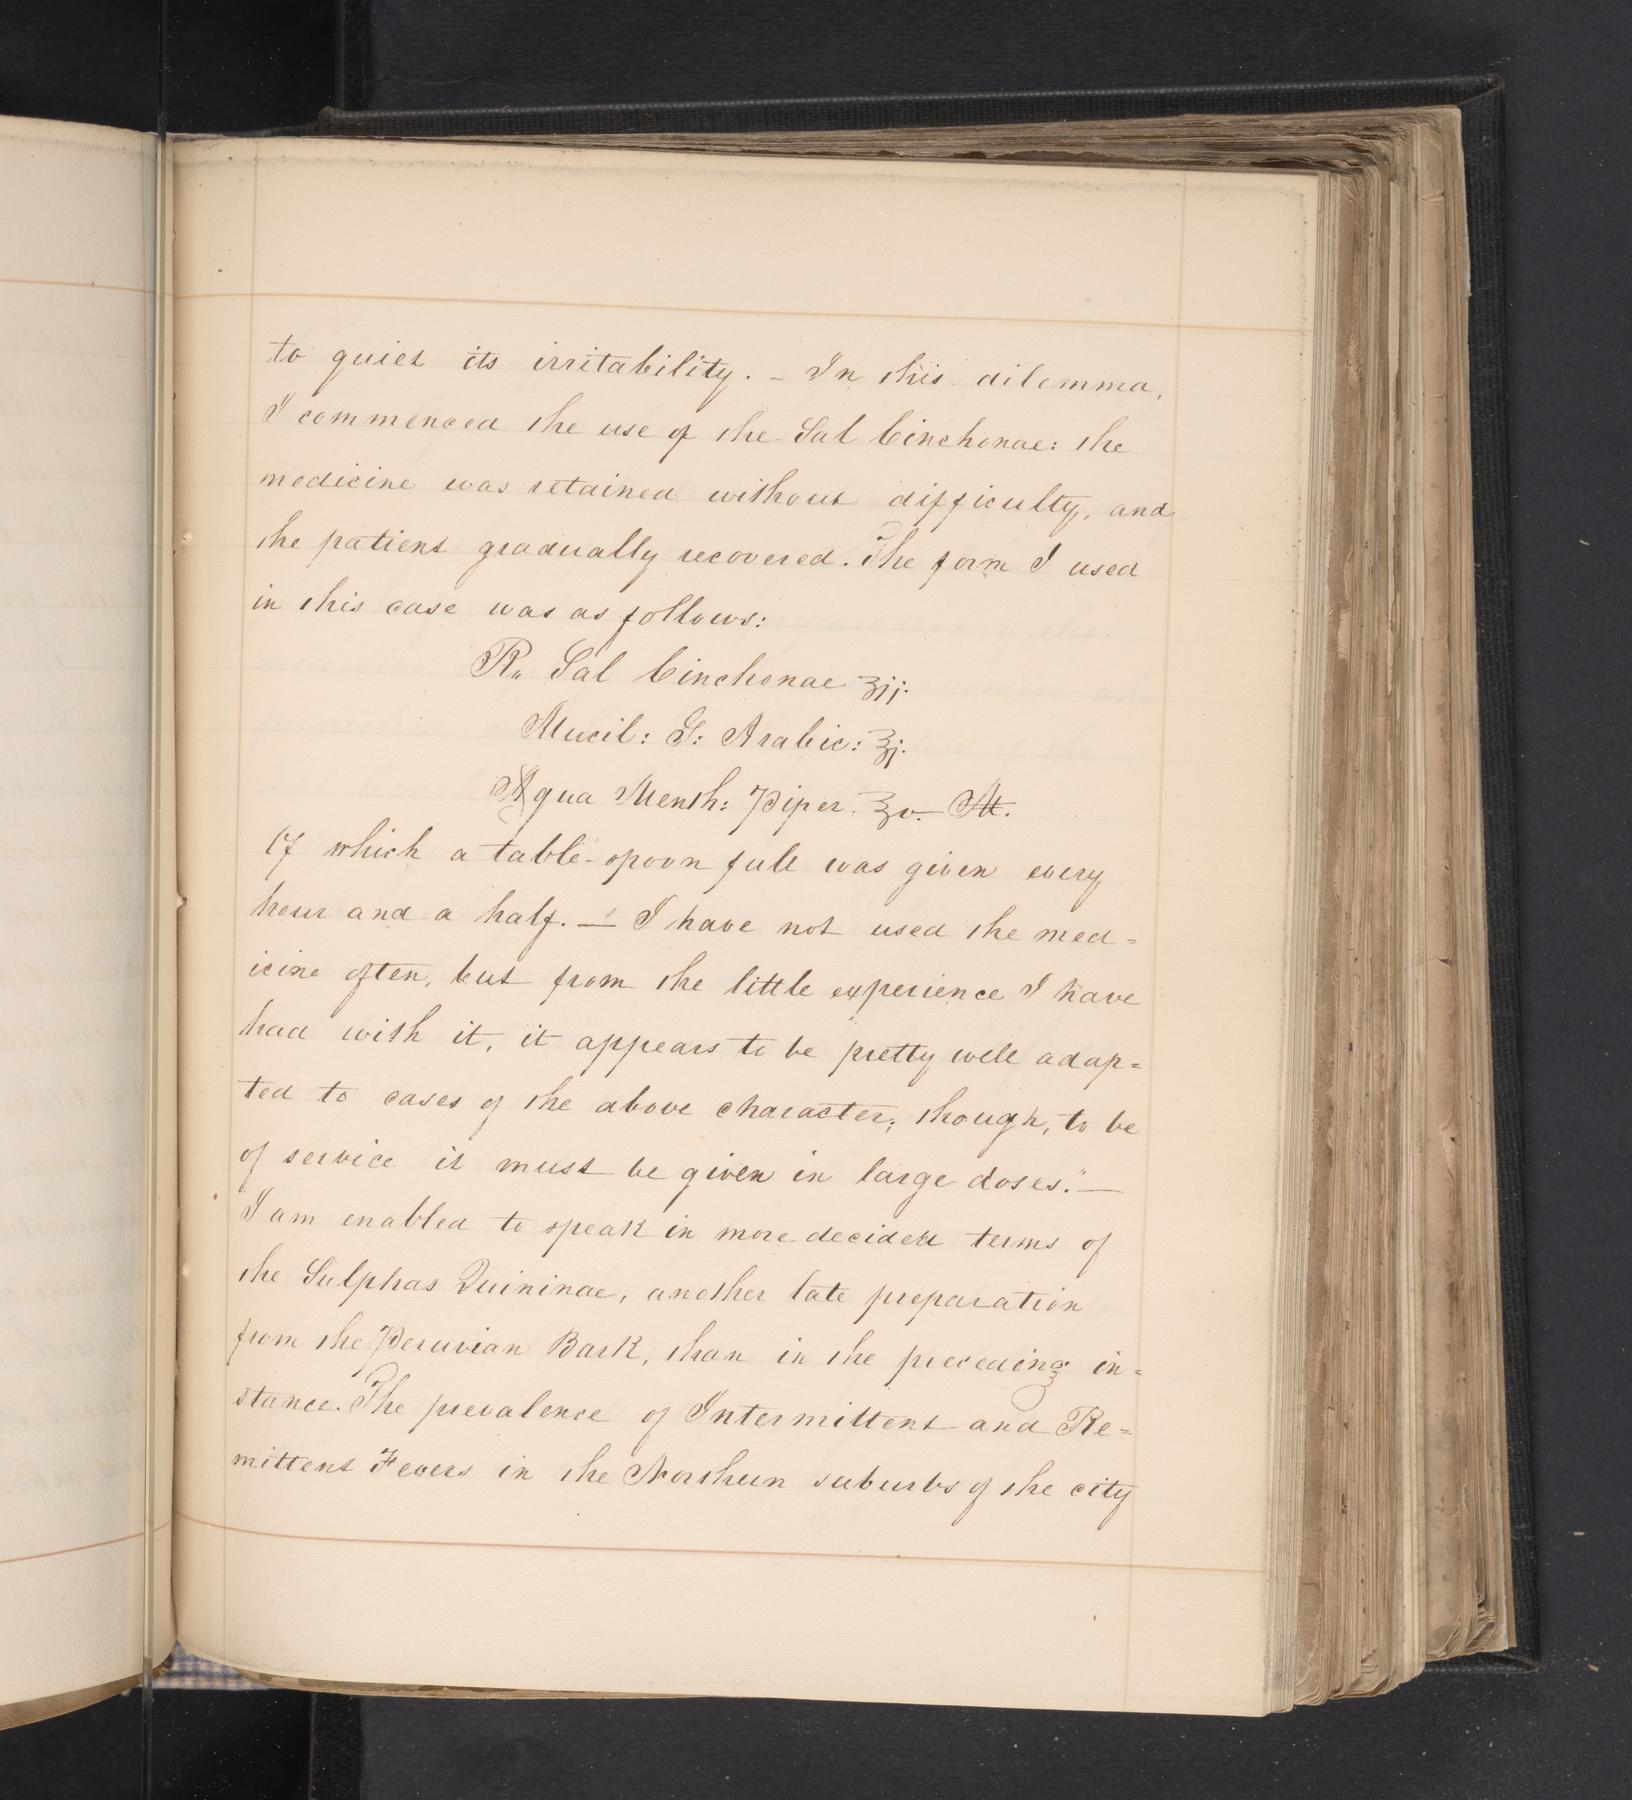 to quiet its irritability. - In this dilemma,
I commenced the use of the Sal Cinchonae: the
medicine was retained without difficulty, and
the patient gradually recovered. The form I used
in this case was as follows:
R,, Sal Cinchonae ʒij.
Mucil: G: Arabic: ℥j.
Aqua Menth: Piper. ℥v.— M.
Of which a table-spoon full was given every
hour and a half. — I have not used the med=
icine often, but from the little experience I have
had with it, it appears to be pretty well adap=
ted to cases of the above character; though, to be
of service it must be given in large doses." —
I am enabled to speak in more decided terms of
the Sulphas Quininae, another late preparation
from the Peruvian Bark, than in the preceding in=
stance. The prevalence of Intermittent and Re=
mittent Fevers in the Northern suburbs of the city